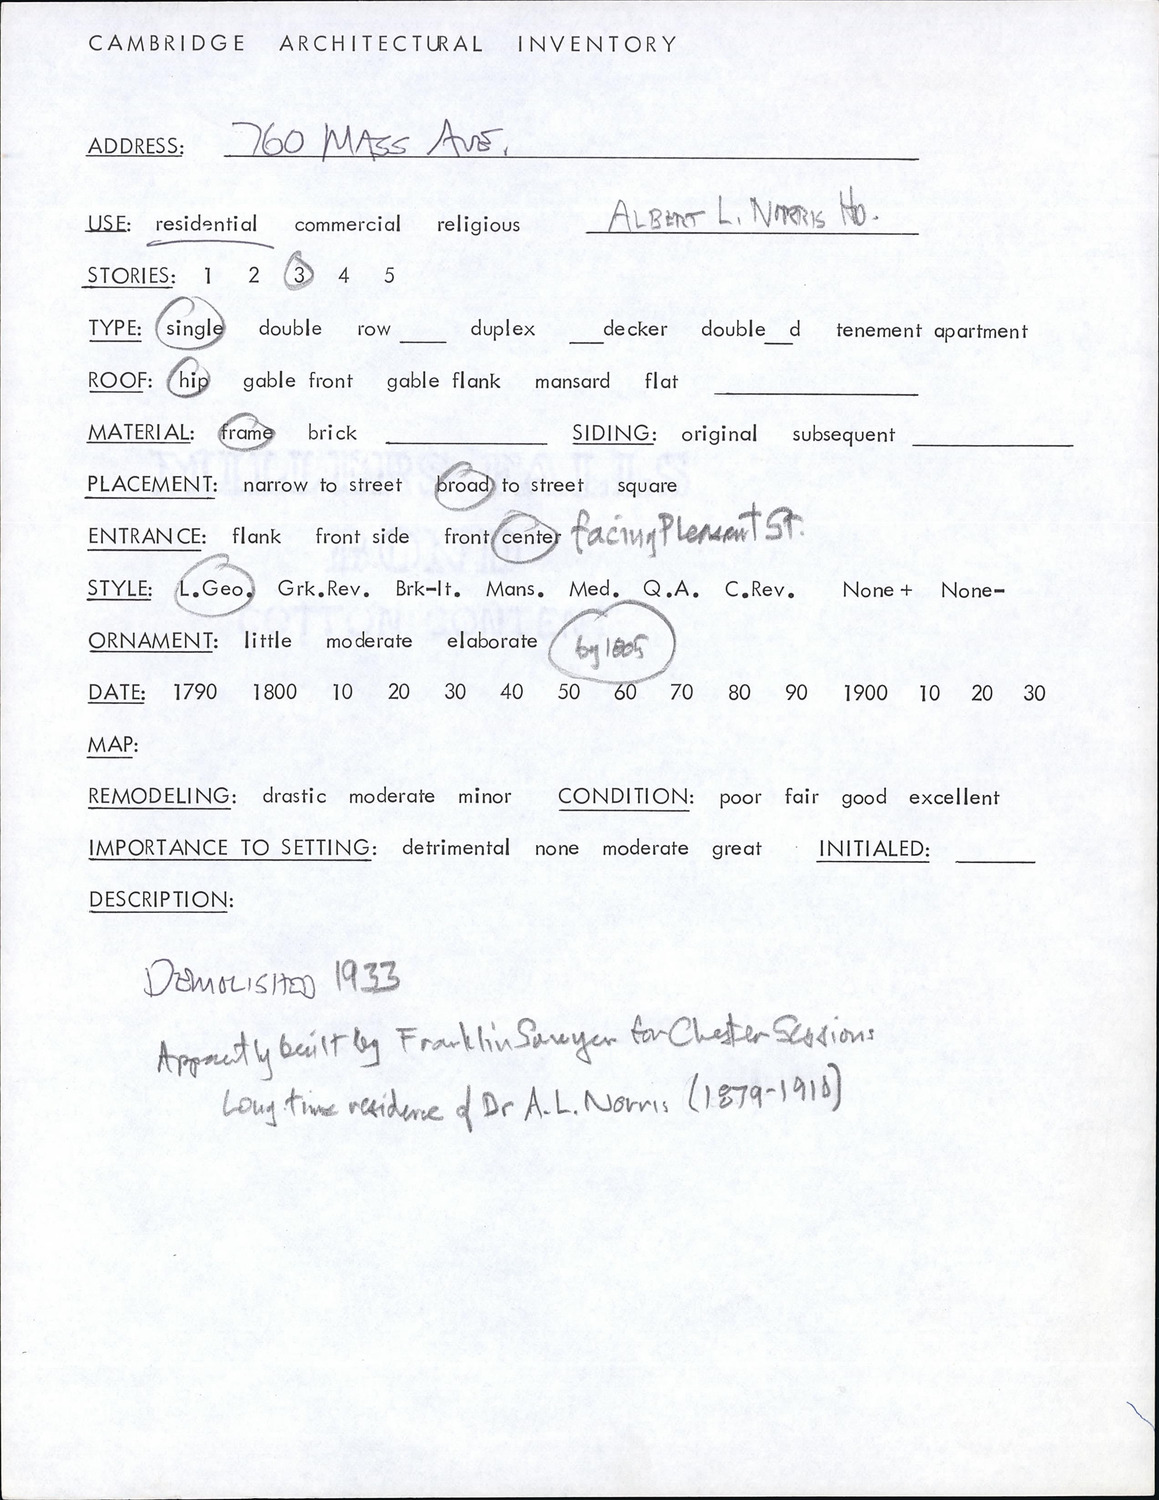 CAMBRIDGE ARCHITECTURAL INVENTORY
ADDRESS: 760 MASS AVE.
USE: residential commercial religious ALBERT L. NORRIS HO.
STORIES: 1 2 3 4 5
TYPE: single double row ___ duplex ___decker double__d tenement apartment
ROOF: hip gable front gable flank mansard flat
MATERIAL: frame brick SIDING: original subsequent
PLACEMENT: narrow to street broad to street square
ENTRANCE: flank front side front center facing Pleasant St.
STYLE: L.Geo. Grk.Rev. Brk-It. Mans. Med. Q.A. C.Rev. None+ None-
ORNAMENT: little moderate elaborate by 1805
DATE: 1790 1800 10 20 30 40 50 60 70 80 90 1900 10 20 30
MAP:
REMODELING: drastic moderate minor CONDITION: poor fair good excellent
IMPORTANCE TO SETTING: detrimental none moderate great INITIALED:
DESCRIPTION:
DEMOLISHED 1933
Apparently built by Franklin Sawyer for Chester Sessions
Long time residence of Dr A.L. Norris (1879-1918)